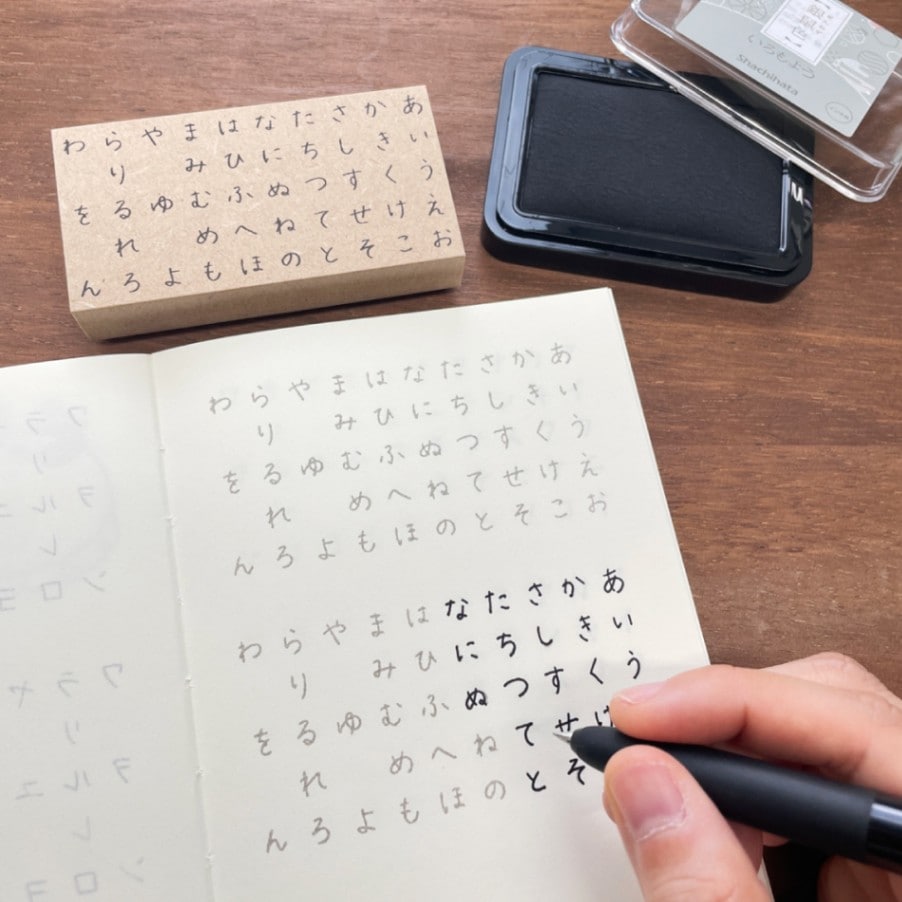 あいうえお
かきくけこ
さしすせそ
たちつてと
なにぬねの
はひふへほ
まみむめも
やゆよ
らりるれろ
わをん
銀鼠色
いろもよう
Shachihata
あいうえお
かきくけこ
さしすせそ
たちつてと
なにぬねの
はひふへほ
まみむめも
やゆよ
らりるれろ
わをん
あいう
かきくけ
さしすせそ
たちつてと
なにぬねの
はひふへほ
まみむめも
やゆよ
らりるれろ
わをん